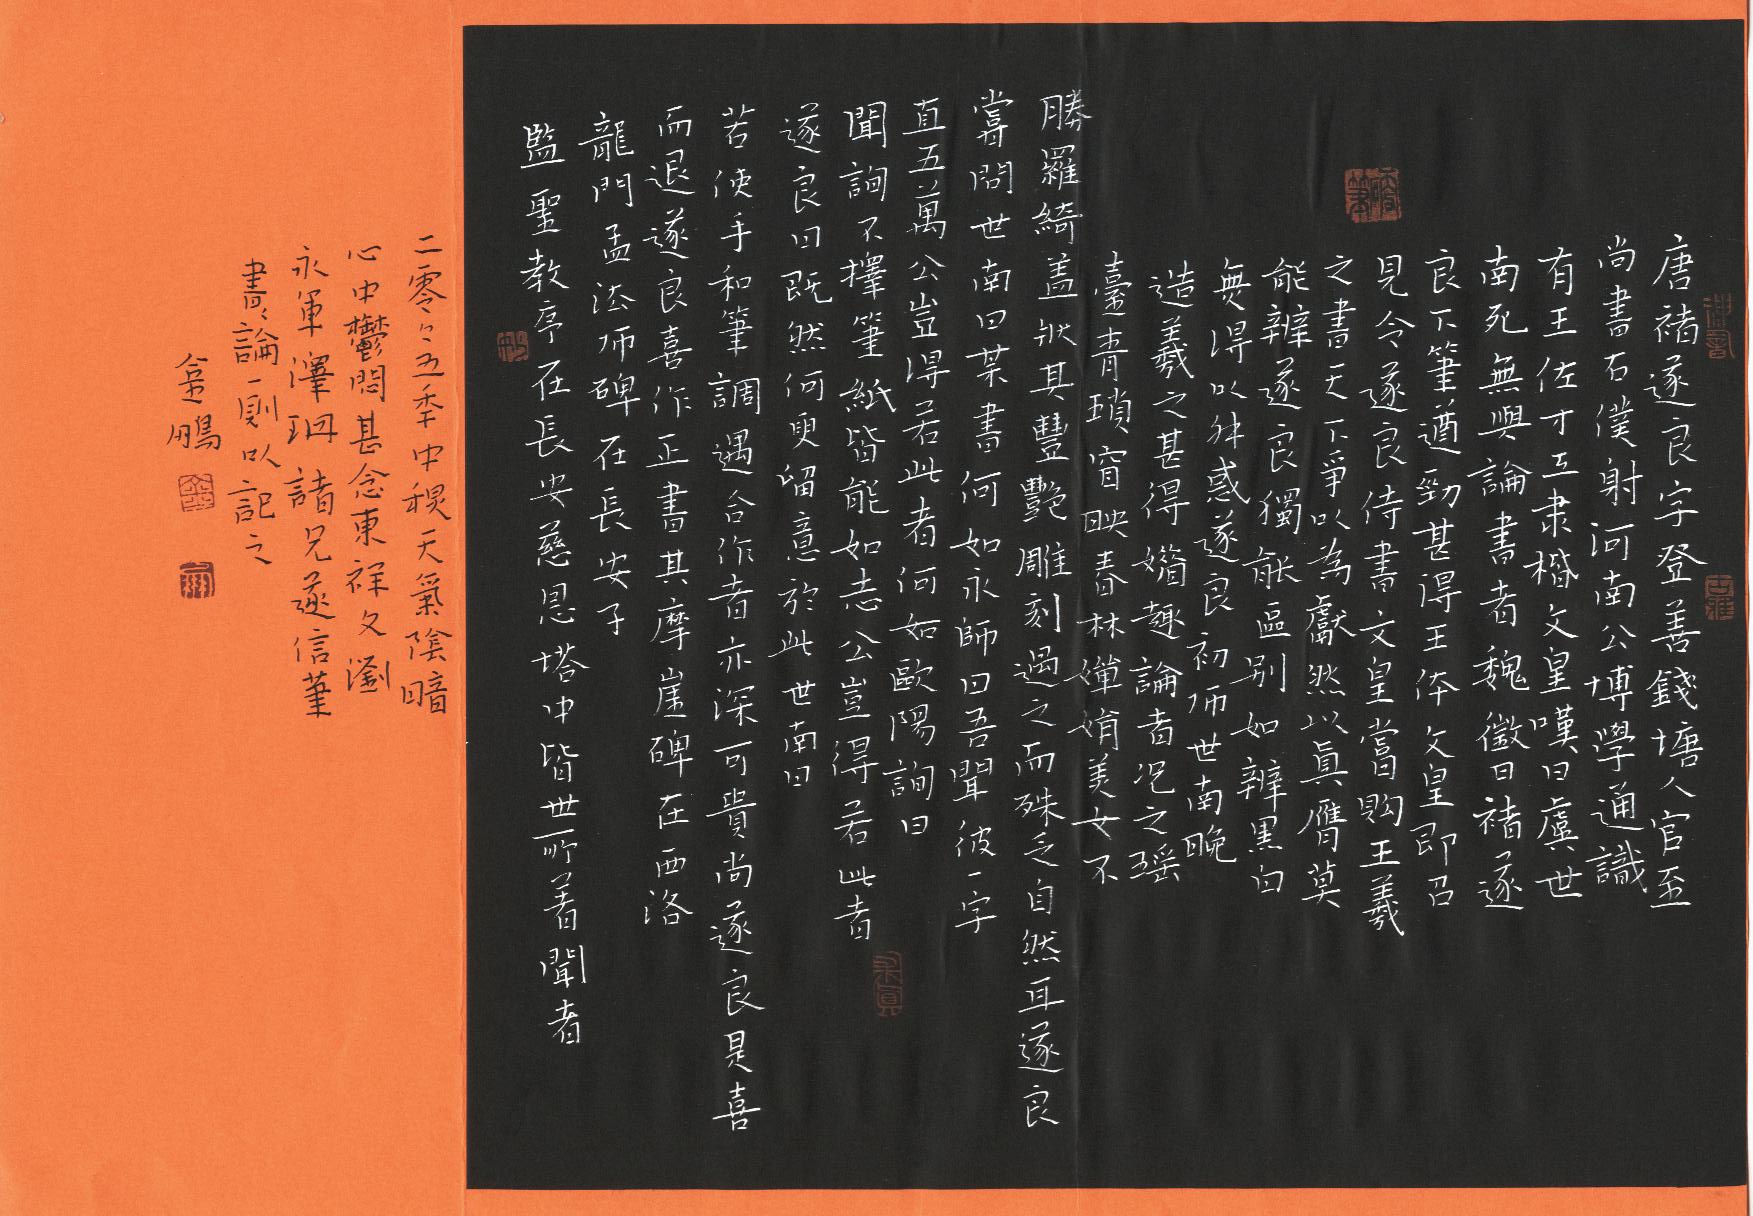 唐褚遂良字登善錢塘人官至
尚書右僕射河南公博學通識
有王佐才工隶楷文皇嘆曰虞世
南死無與論書者魏徵曰褚遂
良下筆遒勁甚得王体文皇即召
見令遂良侍書文皇嘗购王羲
之書天下爭以為獻然以真贋莫
能辨遂良獨能區别如辨黑白
無得以舛惑遂良初师世南晚
造羲之甚得媚趣論者况之瑶
臺青瑣窗映春林嬋娟美女不
勝羅綺盖状其豐艷雕刻過之而殊乏自然耳遂良
嘗問世南曰某書何如永師曰吾聞彼一字
直五萬公豈得若此者何如歐陽詢曰
聞詢不擇筆紙皆能如志公豈得若此者
遂良曰既然何更留意於此世南曰
若使手和筆調遇合作者亦深可貴尚遂良是喜
而退遂良喜作正書其摩崖碑在西洛
龍門孟法师碑在長安子
監聖教序在長安慈恩塔中皆世所著聞者
二零々五年中秋天氣陰暗
心中鬱悶甚念東祥文瀏
永軍澤珊諸兄遂信筆
書書論一則以記之
金鵬